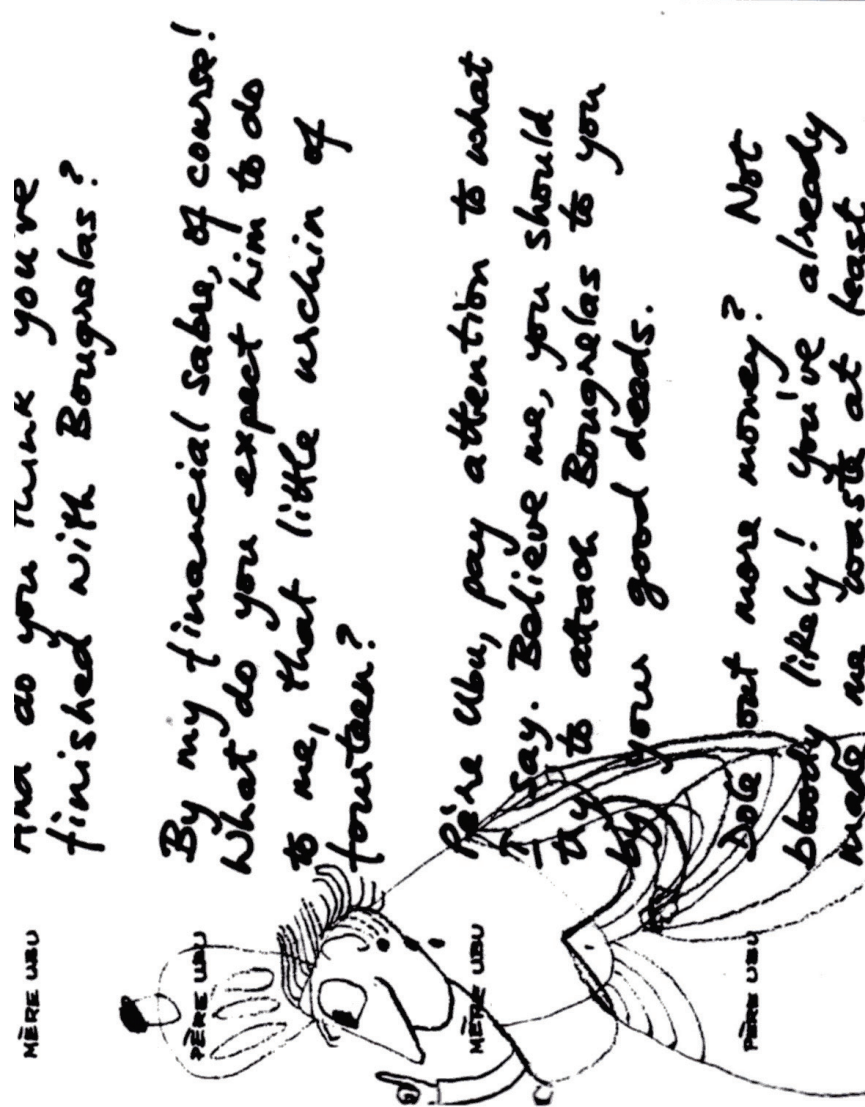 MÈRE UBU And do you think you've
finished with Bougrelas?
PÈRE UBU By my financial sabre, of course!
What do you expect him to do
to me, that little urchin of
fourteen?
MÈRE UBU Père Ubu, pay attention to what
I say. Believe me, you should
try to attach Bougrelas to you
by your good deeds.
PÈRE UBU Dole out more money? Not
bloody likely! You've already
made me waste at least